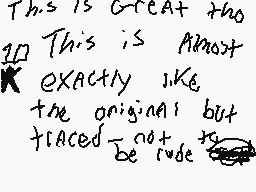 This is Great tho
10 This is Almost
K exactly like
the original but
traced - not to
be rude